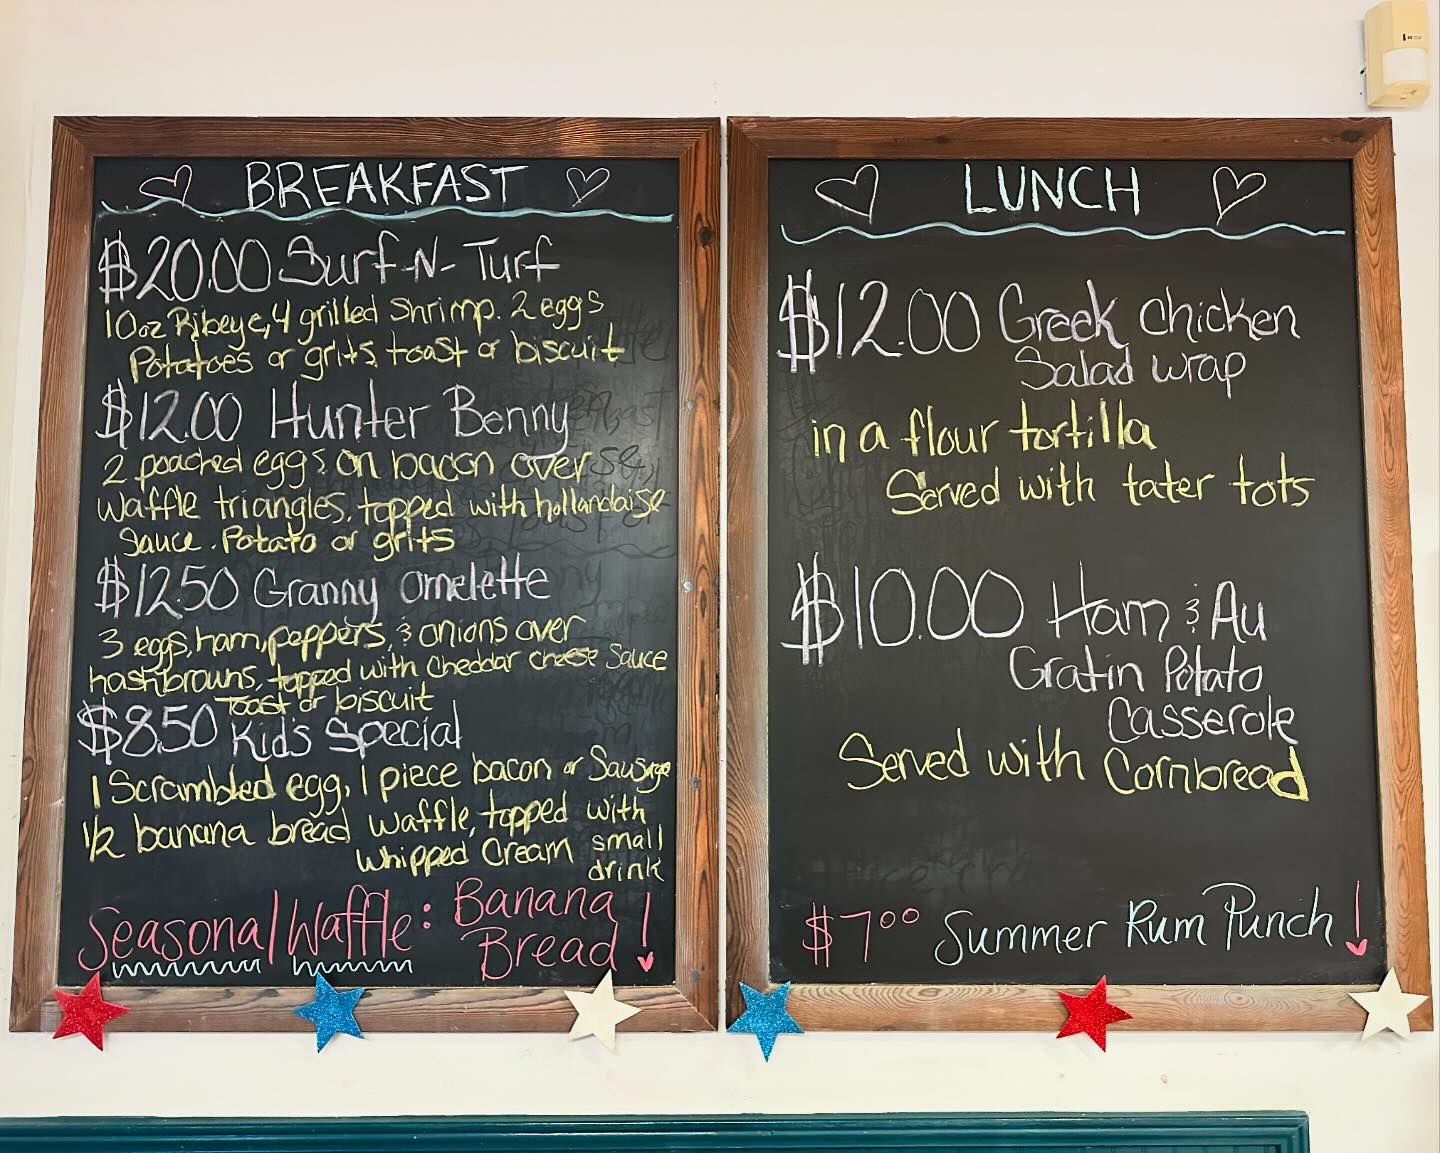 BREAKFAST
$20.00 Surf-N-Turf
10oz Ribeye, 4 grilled shrimp. 2 eggs
Potatoes or grits, toast or biscuit
$12.00 Hunter Benny
2 poached eggs on bacon over
waffle triangles, topped with hollandaise
sauce. Potato or grits
$12.50 Granny omelette
3 eggs, ham, peppers, & onions over
hashbrowns, topped with cheddar cheese sauce
toast or biscuit
$8.50 Kid's special
1 Scrambled egg, 1 piece bacon or Sausage
1/2 banana bread waffle, topped with
whipped cream small
drink
Seasonal Waffle: Banana
Bread!
LUNCH
$12.00 Greek chicken
Salad wrap
in a flour tortilla
Served with tater tots
$10.00 Ham & Au
Gratin Potato
Casserole
Served with Cornbread
$7.00 Summer Rum Punch!